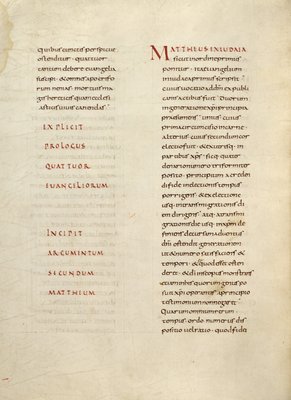 quibus cunctis perspicue
ostenditur · quattuor
tantum debere euangelia
suscipi · & omnes apocrifo
rum nenias mortuis ma
gis hereticis quam eccle si
asticis uiuis canendas ·
EXPLICIT
PROLOGUS
QUATTUOR
EUANGELIORUM
INCIPIT
ARGUMENTUM
SECUNDUM
MATTHEUM
MATTHEUS IN IUDAEA
sicut in ordine primus
ponitur · ita euangelium
in iudaea primus scripsit
cuius uocatio ad dm ex publi
canis actibus fuit · Duorum
in generatione xpi principia
praesumens · unius cuius
prima circumcisio in carne
alterius cuius secundum cor
electio fuit · & ex utrisq· in
patribus xps · sicq· quater
denario numero triformiter
posito · principium a creden
di fide in electionis tempus
porrigens · & ex electione
usq· in transmigrationis di
em dirigens · atq· a transmi
gratione usq· in xpm de
finiens decursam aduentus
dni ostendit generationem
ut & numero satisfaciens &
tempori · & se quod esset osten
deret · & di in se opus monstrans
etiam in his quorum genus po
suit xpi operantis a principio
testimonium non negaret
Quarum omnium rerum
tempus · ordo numerus dis
positio uel ratio · quod fidei